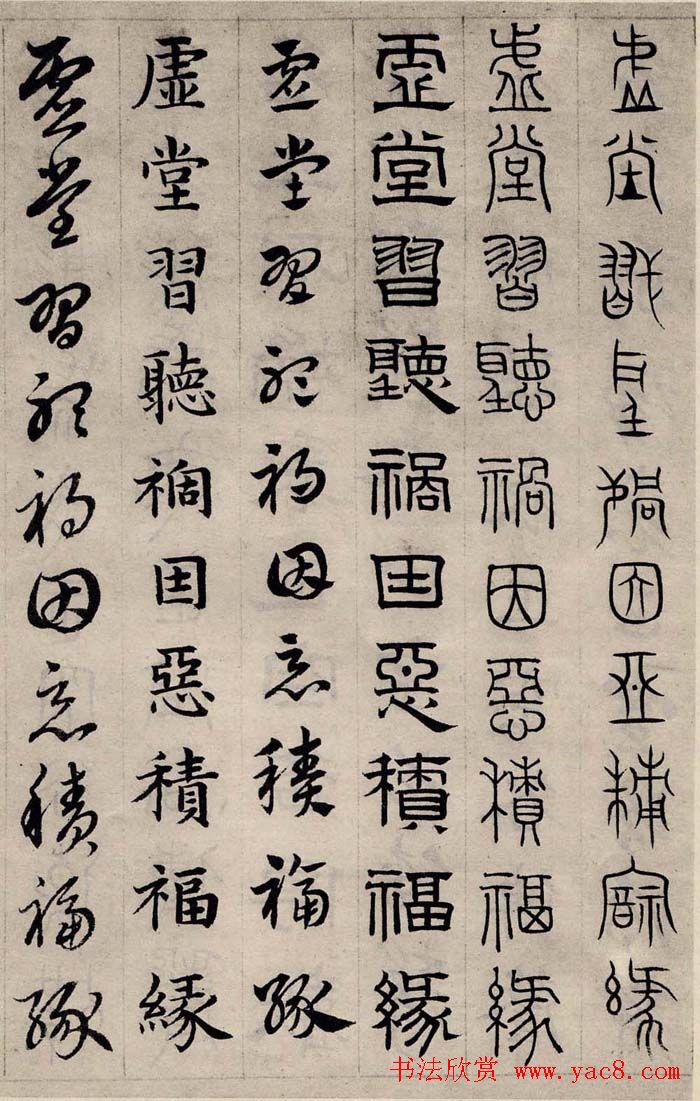 虚堂習聽禍因惡積福緣
虚堂習聽禍因惡積福緣
虚堂習聽禍因惡積福緣
虚堂習聽禍因惡積福緣
虚堂習聽禍因惡積福緣
虚堂習聽禍因惡積福緣
书法欣赏 www.yac8.com